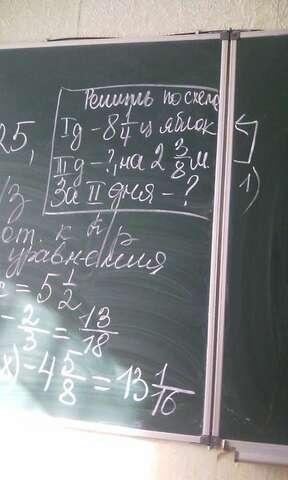 Решить по схеме
I д - 8 1/4 ц яблок
25,
II д - ?, на 2 3/8 м.
За II дня - ?
1)
уравнения
= 5 1/2
- 2/3 = 13/18
x) - 4 5/8 = 13 1/16